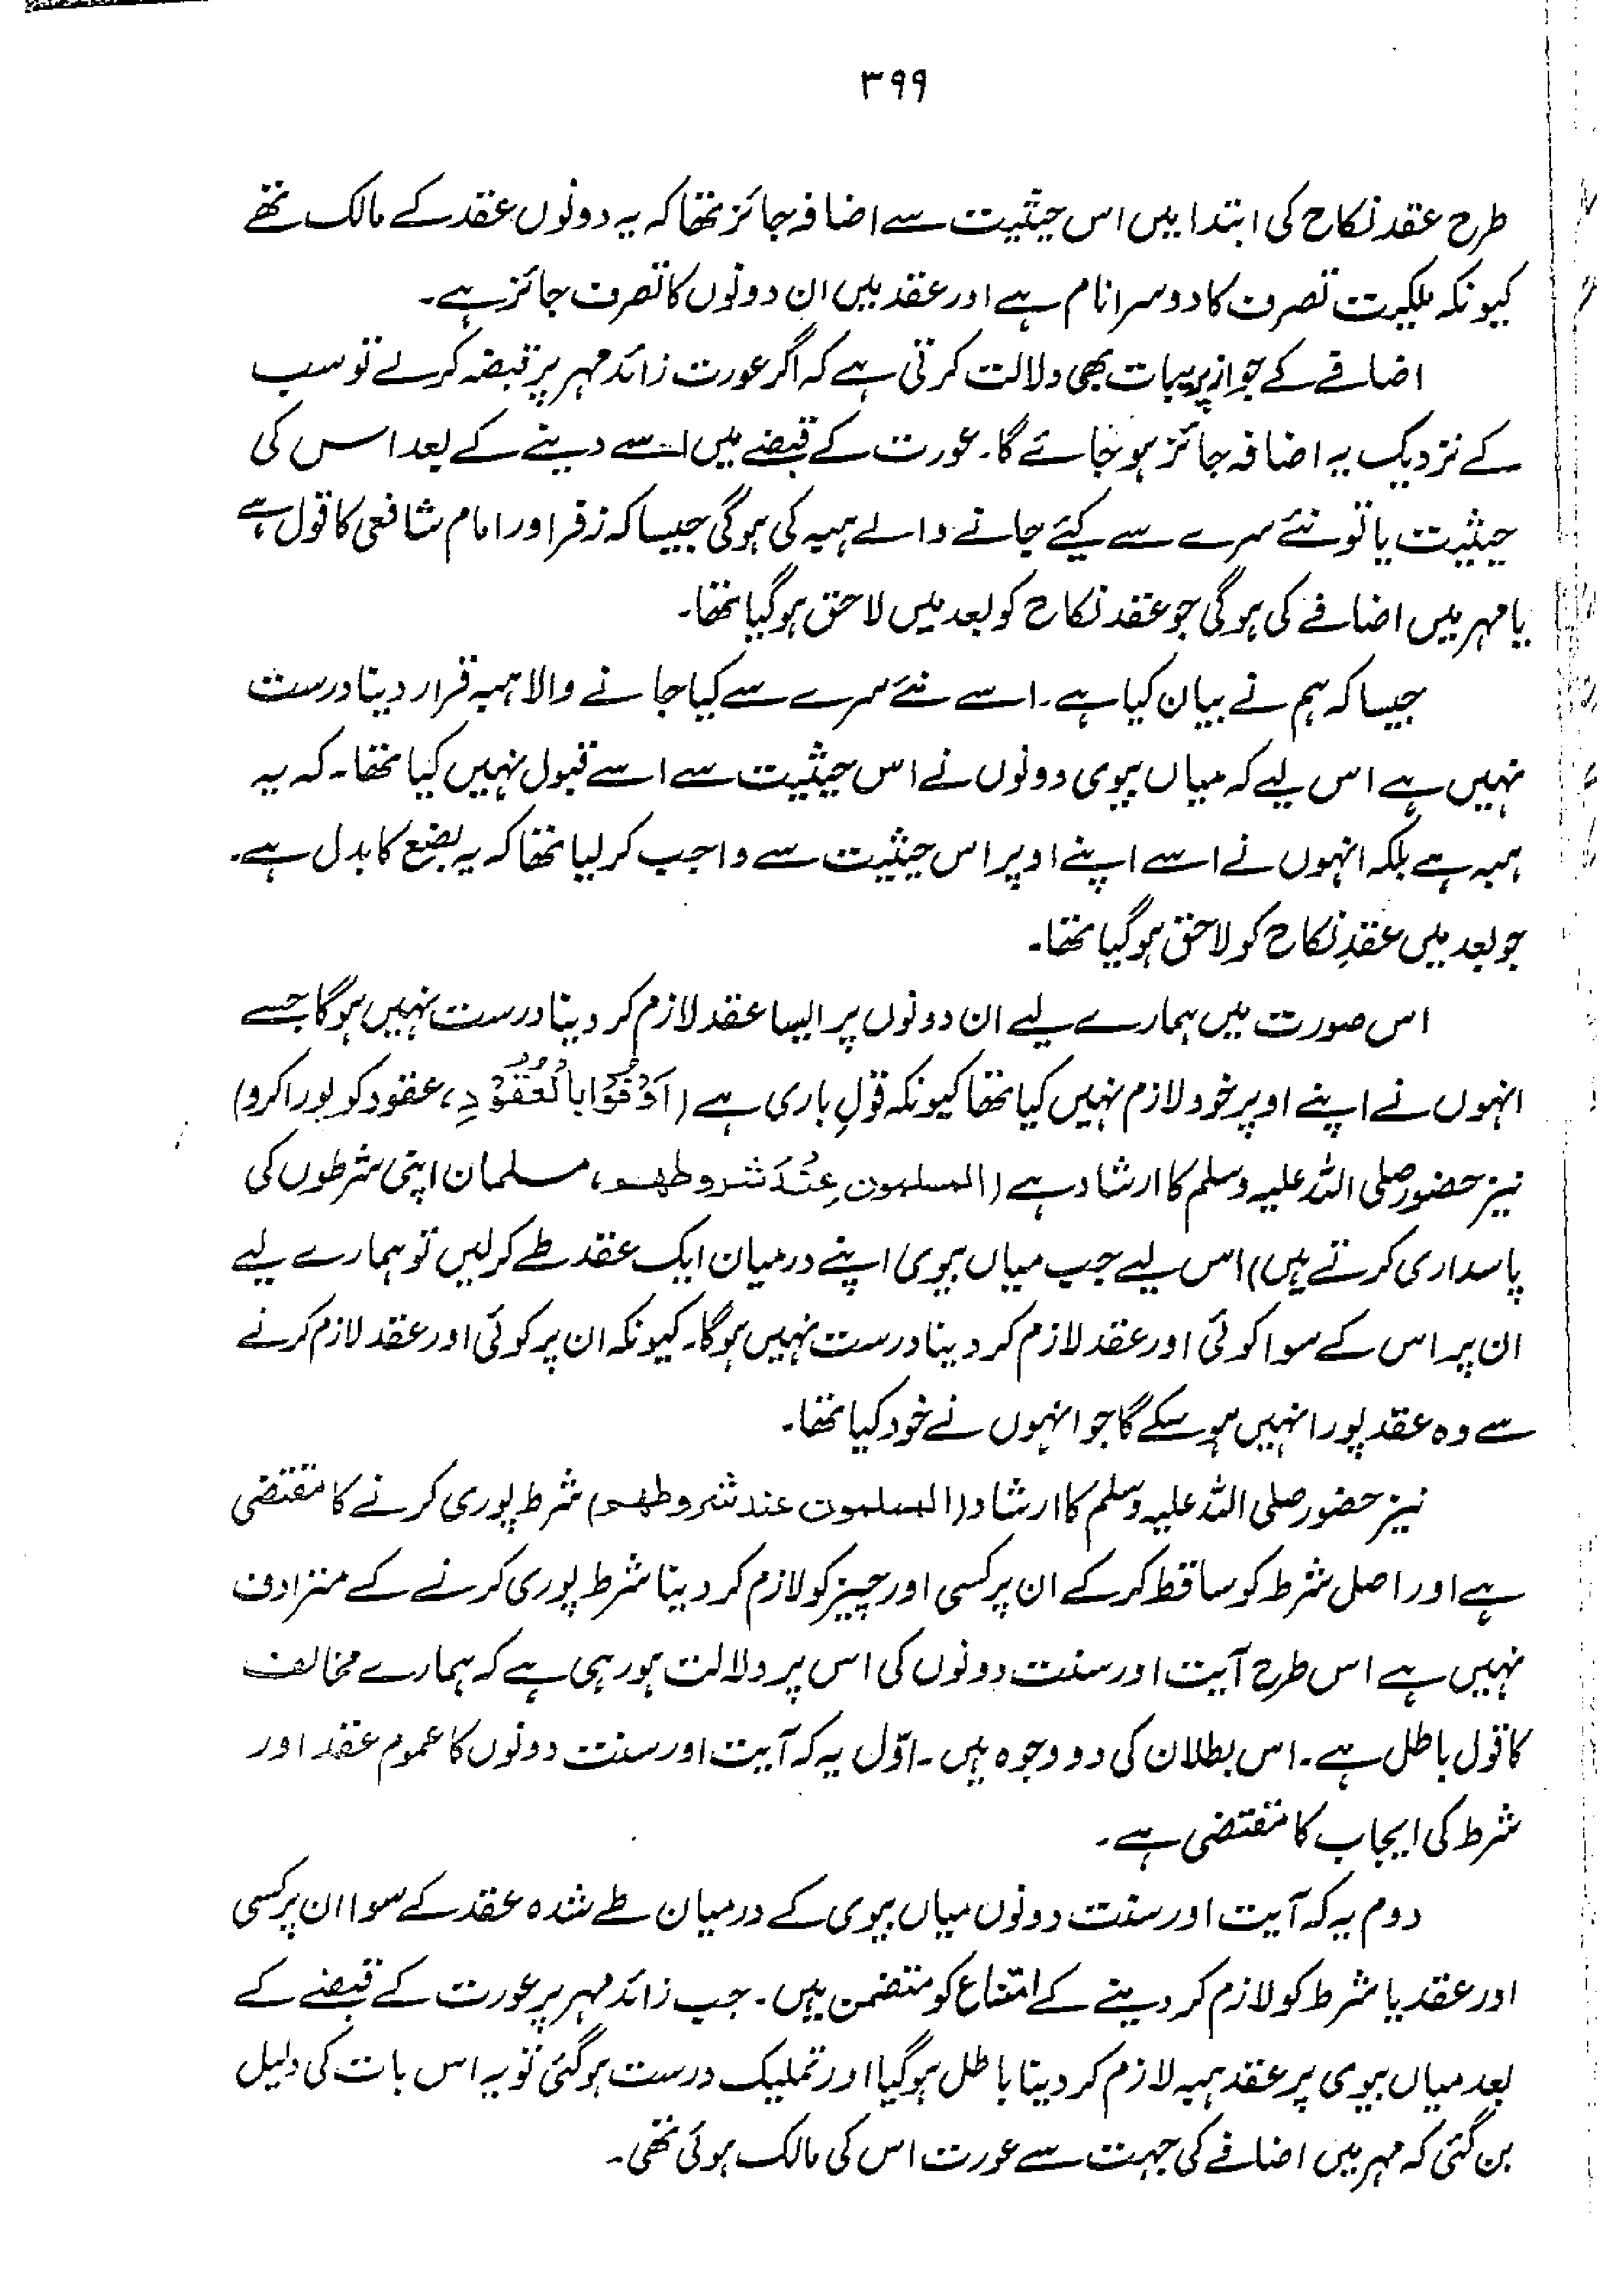 ۳۹۹
طرح عقد نکاح کی ابتدا میں اس حیثیت سے اضافہ جائز تھا کہ یہ دونوں عقد کے مالک تھے
کیونکہ ملکیت تصرف کا دوسرا نام ہے اور عقد میں ان دونوں کا تصرف جائز ہے۔
اضافے کے جواز پر یہ بات بھی دلالت کرتی ہے کہ اگر عورت زائد مہر پر قبضہ کرلے تو سب
کے نزدیک یہ اضافہ جائز ہو جائے گا۔ عورت کے قبضے میں اسے دینے کے بعد اس کی
حیثیت یا تو نئے سرے سے کیئے جانے والے ہبہ کی ہوگی جیسا کہ زفر اور امام شافعی کا قول ہے
یا مہر میں اضافے کی ہوگی جو عقد نکاح کو بعد میں لاحق ہوگیا تھا۔
جیسا کہ ہم نے بیان کیا ہے۔ اسے نئے سرے سے کیا جانے والا ہبہ قرار دینا درست
نہیں ہے اس لیے کہ میاں بیوی دونوں نے اس حیثیت سے اسے قبول نہیں کیا تھا۔ کہ یہ
ہبہ ہے بلکہ انہوں نے اسے اپنے اوپر اس حیثیت سے واجب کر لیا تھا کہ یہ بضع کا بدل ہے۔
جو بعد میں عقدِ نکاح کو لاحق ہوگیا تھا۔
اس صورت میں ہمارے لیے ان دونوں پر ایسا عقد لازم کر دینا درست نہیں ہوگا جسے
انہوں نے اپنے اوپر خود لازم نہیں کیا تھا کیونکہ قولِ باری ہے (اَوْفُوْا بِالْعُقُوْدِ، عقود کو پورا کرو)
نیز حضور صلی اللہ علیہ وسلم کا ارشاد ہے (المسلمون عِنْدَ شروطھم، مسلمان اپنی شرطوں کی
پاسداری کرتے ہیں) اس لیے جب میاں بیوی اپنے درمیان ایک عقد طے کرلیں تو ہمارے لیے
ان پر اس کے سوا کوئی اور عقد لازم کر دینا درست نہیں ہوگا۔ کیونکہ ان پر کوئی اور عقد لازم کرنے
سے وہ عقد پورا نہیں ہو سکے گا جو انہوں نے خود کیا تھا۔
نیز حضور صلی اللہ علیہ وسلم کا ارشاد (المسلمون عند شروطھم) شرط پوری کرنے کا مقتضی
ہے اور اصل شرط کو ساقط کرکے ان پر کسی اور چیز کو لازم کر دینا شرط پوری کرنے کے مترادف
نہیں ہے اس طرح آیت اور سنت دونوں کی اس پر دلالت ہو رہی ہے کہ ہمارے مخالف
کا قول باطل ہے۔ اس بطلان کی دو وجوہ ہیں۔ اوّل یہ کہ آیت اور سنت دونوں کا عموم عقد اور
شرط کی ایجاب کا مقتضی ہے۔
دوم یہ کہ آیت اور سنت دونوں میاں بیوی کے درمیان طے شدہ عقد کے سوا ان پر کسی
اور عقد یا شرط کو لازم کر دینے کے امتناع کو متضمن ہیں۔ جب زائد مہر پر عورت کے قبضے کے
بعد میاں بیوی پر عقد ہبہ لازم کر دینا باطل ہوگیا اور تملیک درست ہوگئی تو یہ اس بات کی دلیل
بن گئی کہ مہر میں اضافے کی جہت سے عورت اس کی مالک ہوئی تھی۔